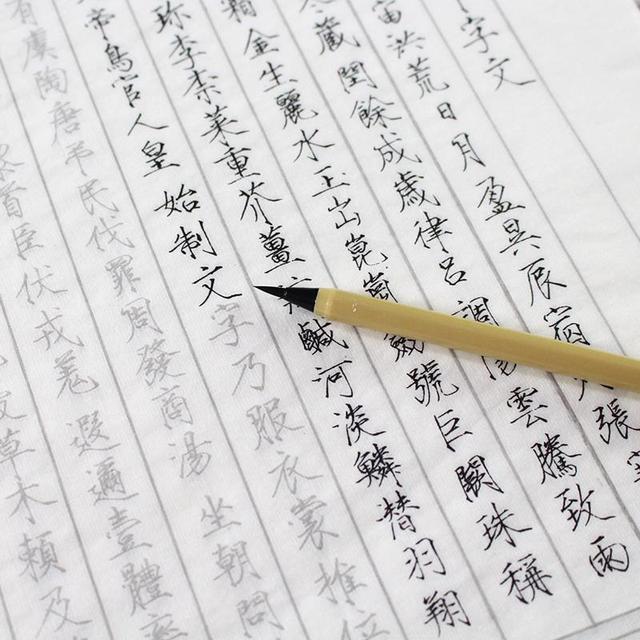 字文
宙洪荒日月盈昃辰宿張
藏閏餘成歲律呂調陽雲騰致雨
金生麗水玉出崑崗劍號巨闕珠稱
珍李柰菜重芥薑鹹河淡鱗潛羽翔
帝鳥官人皇始制文字乃服衣裳推位
有虞陶唐弔民伐罪周發商湯坐朝問
首臣伏戎羌遐邇壹體
草木賴及